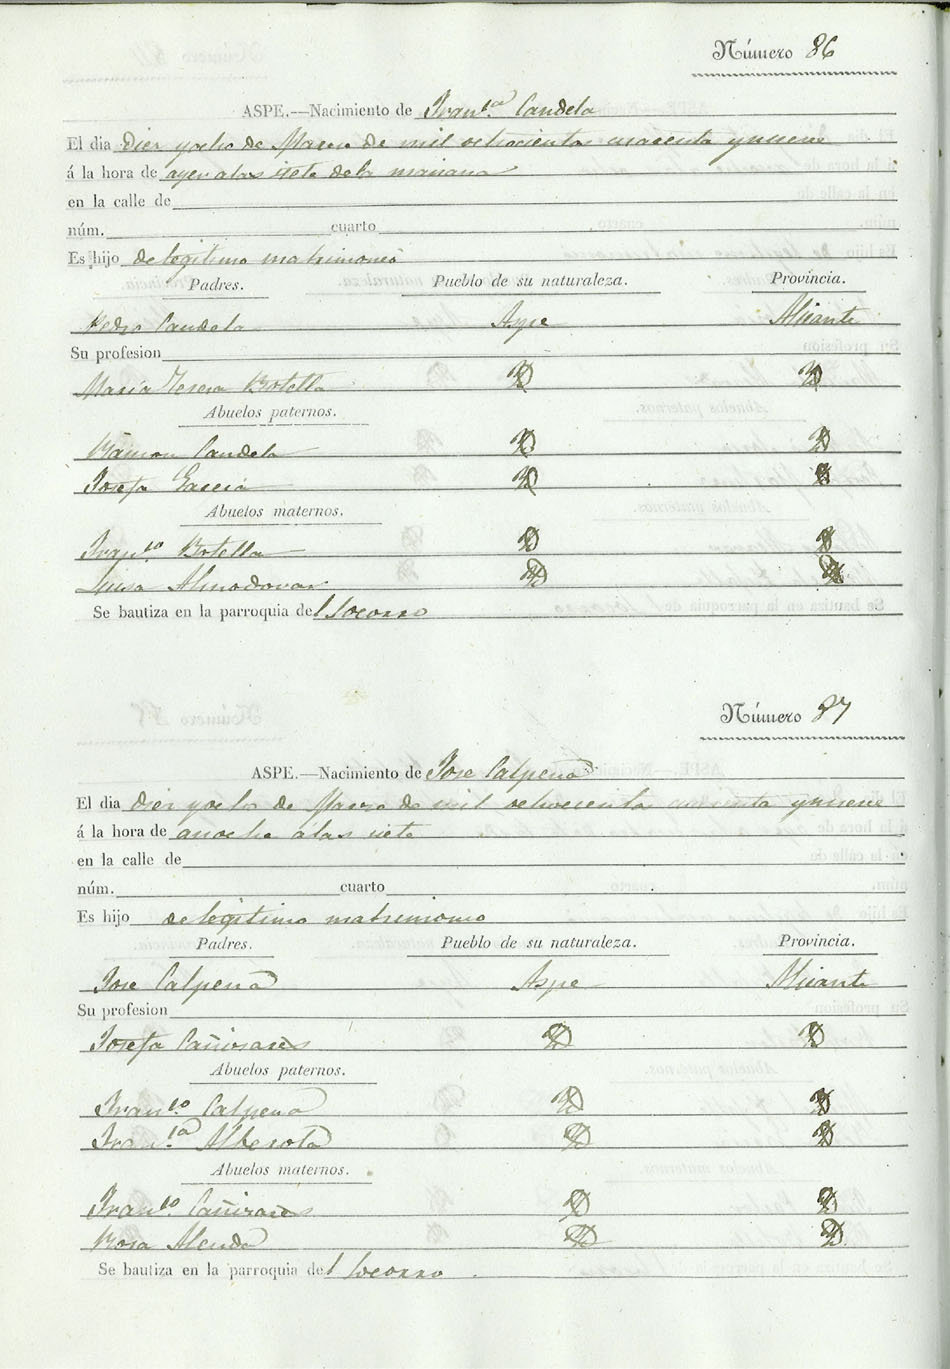 Número 86
ASPE.—Nacimiento de Fran.ca Candela
El dia Diez yocho de Marzo de mil ochocientos cuarenta ynueve
á la hora de ayer alas siete dela mañana
en la calle de
núm. cuarto
Es hijo de legitimo matrimonio
Padres. Pueblo de su naturaleza. Provincia.
Pedro Candela Aspe Alicante
Su profesion
Maria Teresa Botella
Abuelos paternos.
Ramon Candela
Josefa Garcia
Abuelos maternos.
Fran.co Botella
Luisa Almodovar
Se bautiza en la parroquia del Socorro
Número 87
ASPE.—Nacimiento de Jose Calpena
El dia Diez yocho de Marzo de mil ochocientos cuarenta ynueve
á la hora de anoche alas siete
en la calle de
núm. cuarto
Es hijo de legitimo matrimonio
Padres. Pueblo de su naturaleza. Provincia.
Jose Calpena Aspe Alicante
Su profesion
Josefa Cañizares
Abuelos paternos.
Fran.co Calpena
Fran.ca Alberola
Abuelos maternos.
Fran.co Cañizares
Rosa Alenda
Se bautiza en la parroquia del Socorro